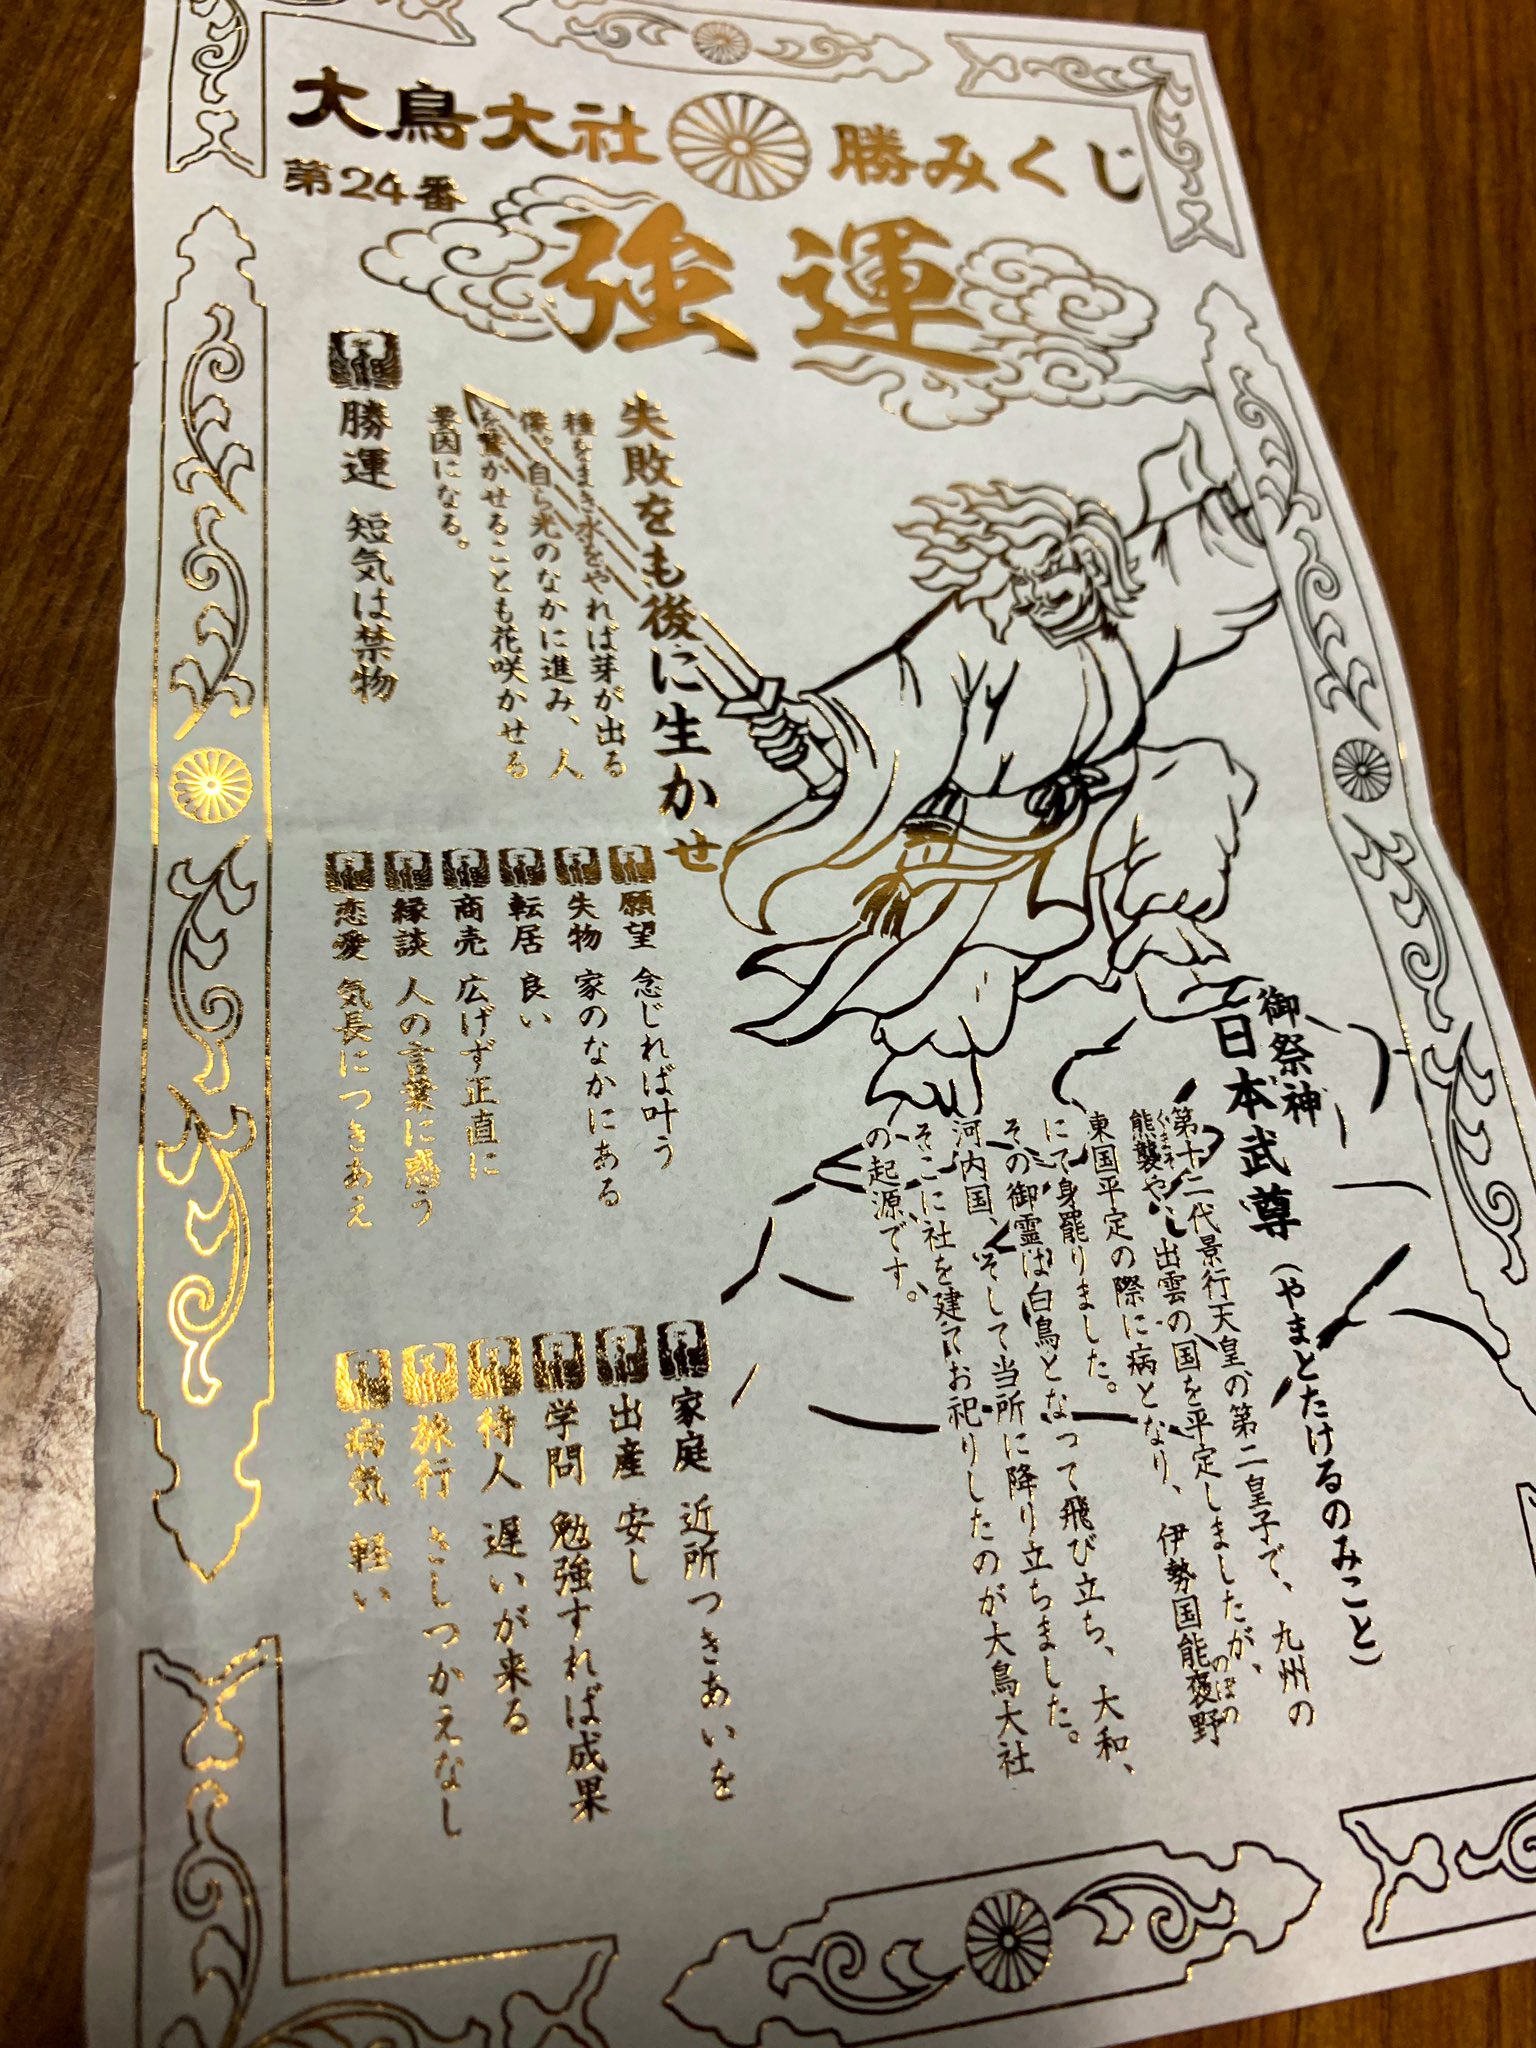 大鳥大社 勝みくじ
第24番
強運
失敗をも後に生かせ
種をまき水をやれば芽が出る
様。自ら光のなかに進み、人
を驚かせることも花咲かせる
要因になる。
勝運 短気は禁物
願望 念じれば叶う
失物 家のなかにある
転居 良い
商売 広げず正直に
縁談 人の言葉に惑う
恋愛 気長につきあえ
御祭神
日本武尊(やまとたけるのみこと)
第十二代景行天皇の第二皇子で、九州の
熊襲や、出雲の国を平定しましたが、
くまそ
東国平定の際に病となり、伊勢国能褒野
のぼの
にて身罷りました。
その御霊は白鳥となって飛び立ち、大和、
河内国、そして当所に降り立ちました。
そこに社を建てお祀りしたのが大鳥大社
の起源です。
家庭 近所つきあいを
出産 安し
学問 勉強すれば成果
待人 遅いが来る
旅行 さしつかえなし
病気 軽い